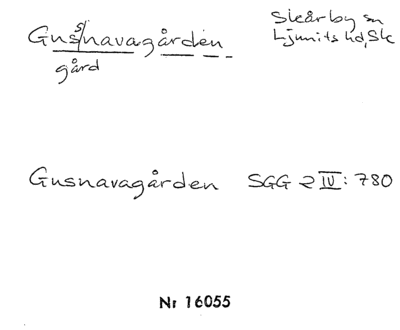 Gussnavagården
gård
Skårby sn
Ljunits hd, Sk
Gusnavagården SGG 2 IV: 780
Nr 16055